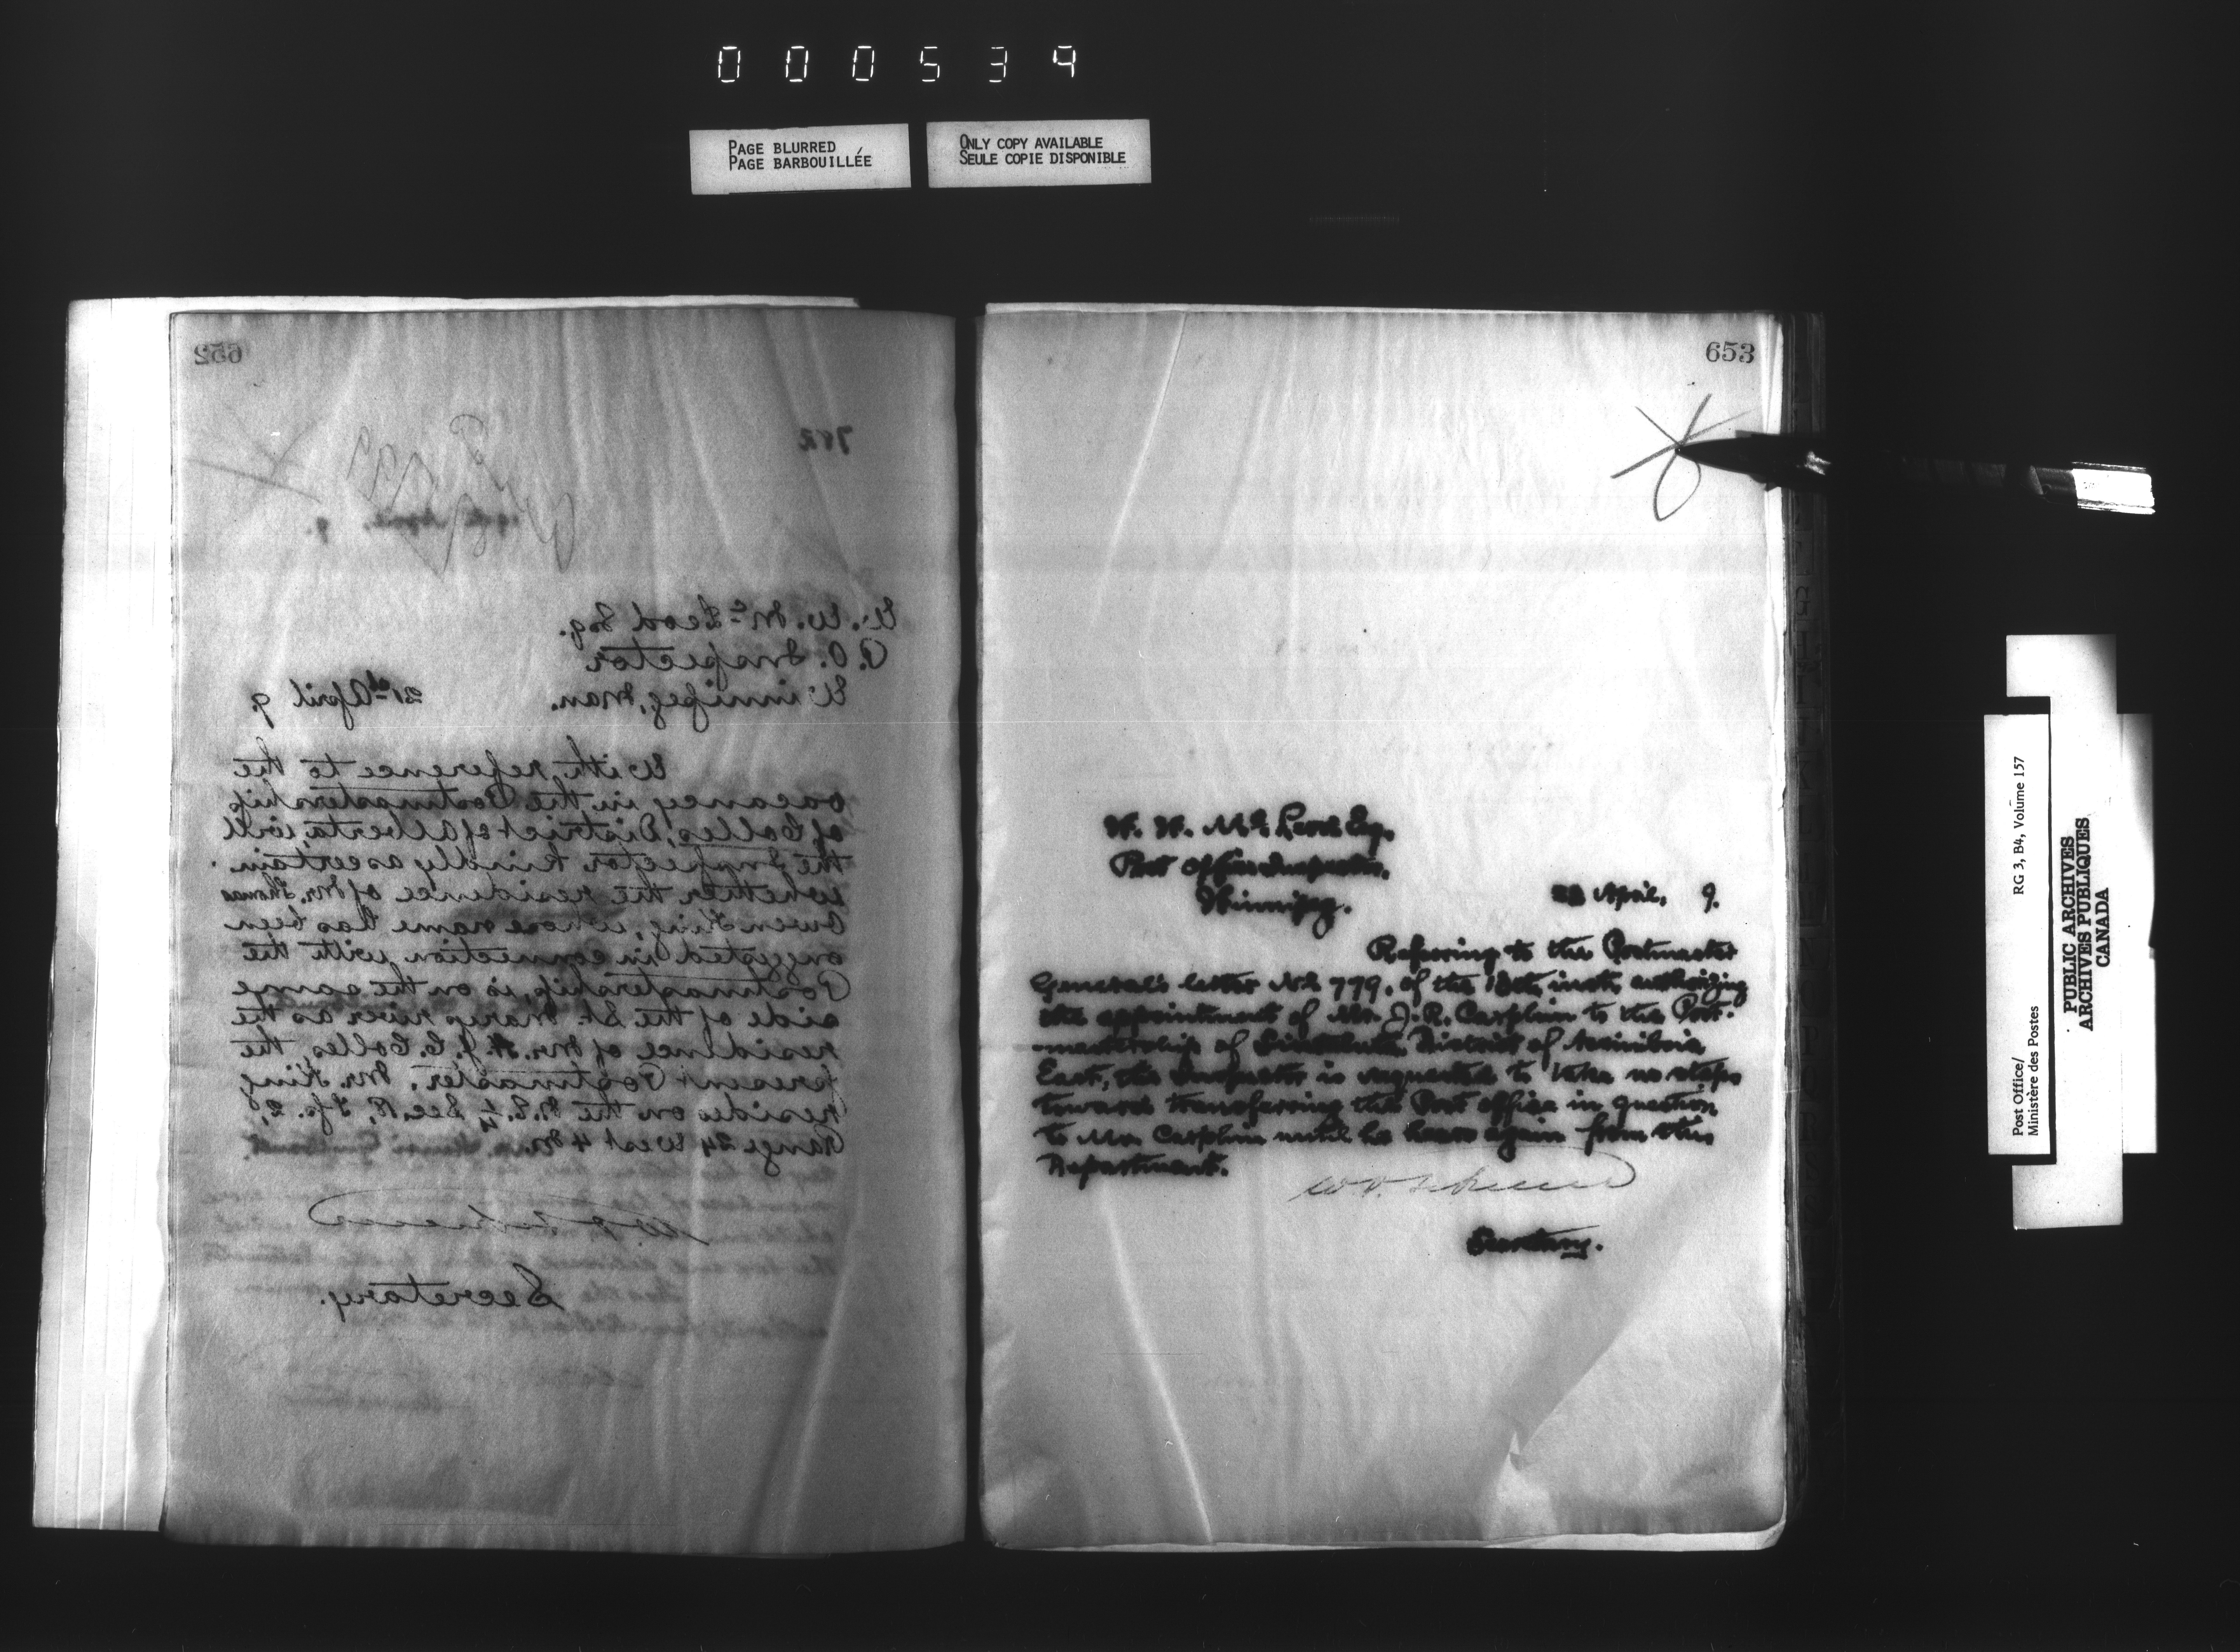 000534
PAGE BLURRED
PAGE BARBOUILLÉE
ONLY COPY AVAILABLE
SEULE COPIE DISPONIBLE
652
782
W. W. McLeod Esq.
P.O. Inspector
Winnipeg, Man. 21st April 9.
With reference to the
vacancy in the Postmastership
of Colles, District of Alberta, will
the Inspector kindly ascertain
whether the residence of Mr. Thomas
Owen King, whose name has been
suggested in connection with the
Postmastership, is on the same
side of the St. Mary's river as the
residence of Mr. H. J. C. Colles, the
present Postmaster. Mr. King
resides on the N.E. ¼ Sec. R, Tp. 2,
Range 24 West 4 M.
Secretary.
653
W. W. McLeod Esq.
Post Office Inspector,
Winnipeg.
April, 9.
Referring to the Postmaster
General's letter No. 779, of the 18th inst, authorizing
the appointment of Mr. J. R. Carphin to the Post-
mastership of District of Assiniboia
East, the Inspector is requested to take no steps
toward transferring the Post office in question
to Mr. Carphin until he hears again from this
Department.
Secretary.
Post Office/
Ministère des Postes
RG 3, B4, Volume 157
PUBLIC ARCHIVES
ARCHIVES PUBLIQUES
CANADA